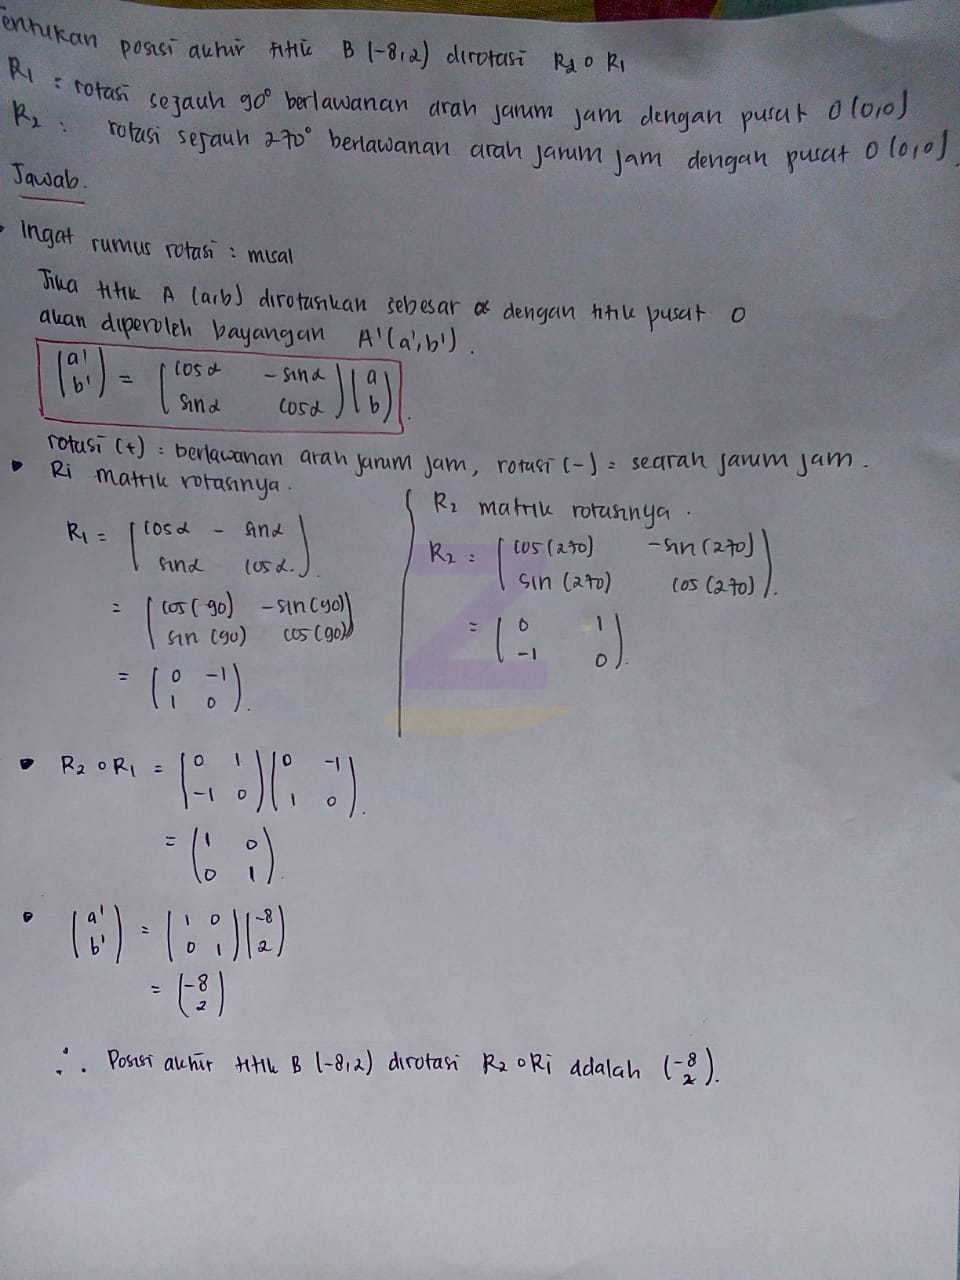 entukan posisi akhir titik B (-8,2) dirotasi R2 o R1
R1 : rotasi sejauh 90° berlawanan arah jarum jam dengan pusat O (0,0)
R2 : rotasi sejauh 270° berlawanan arah jarum jam dengan pusat O (0,0)
Jawab.
Ingat rumus rotasi : misal
Jika titik A (a,b) dirotasikan sebesar α dengan titik pusat O
akan diperoleh bayangan A'(a',b').
(a' b') = (cosα -sinα sinα cosα)(a b).
rotasi (+) = berlawanan arah jarum jam, rotasi (-) = searah jarum jam.
R1 matrik rotasinya.
R1 = (cosα - sinα sinα cosα.).
= (cos(90) -sin(90) sin(90) cos(90))
= (0 -1 1 0).
R2 matrik rotasinya.
R2 = (cos(270) -sin(270) sin(270) cos(270)).
= (0 1 -1 0).
R2 o R1 = (0 1 -1 0)(0 -1 1 0).
= (1 0 0 1).
(a' b') = (1 0 0 1)(-8 2)
= (-8 2)
∴ Posisi akhir titik B (-8,2) dirotasi R2 o R1 adalah (-8 2).
Z